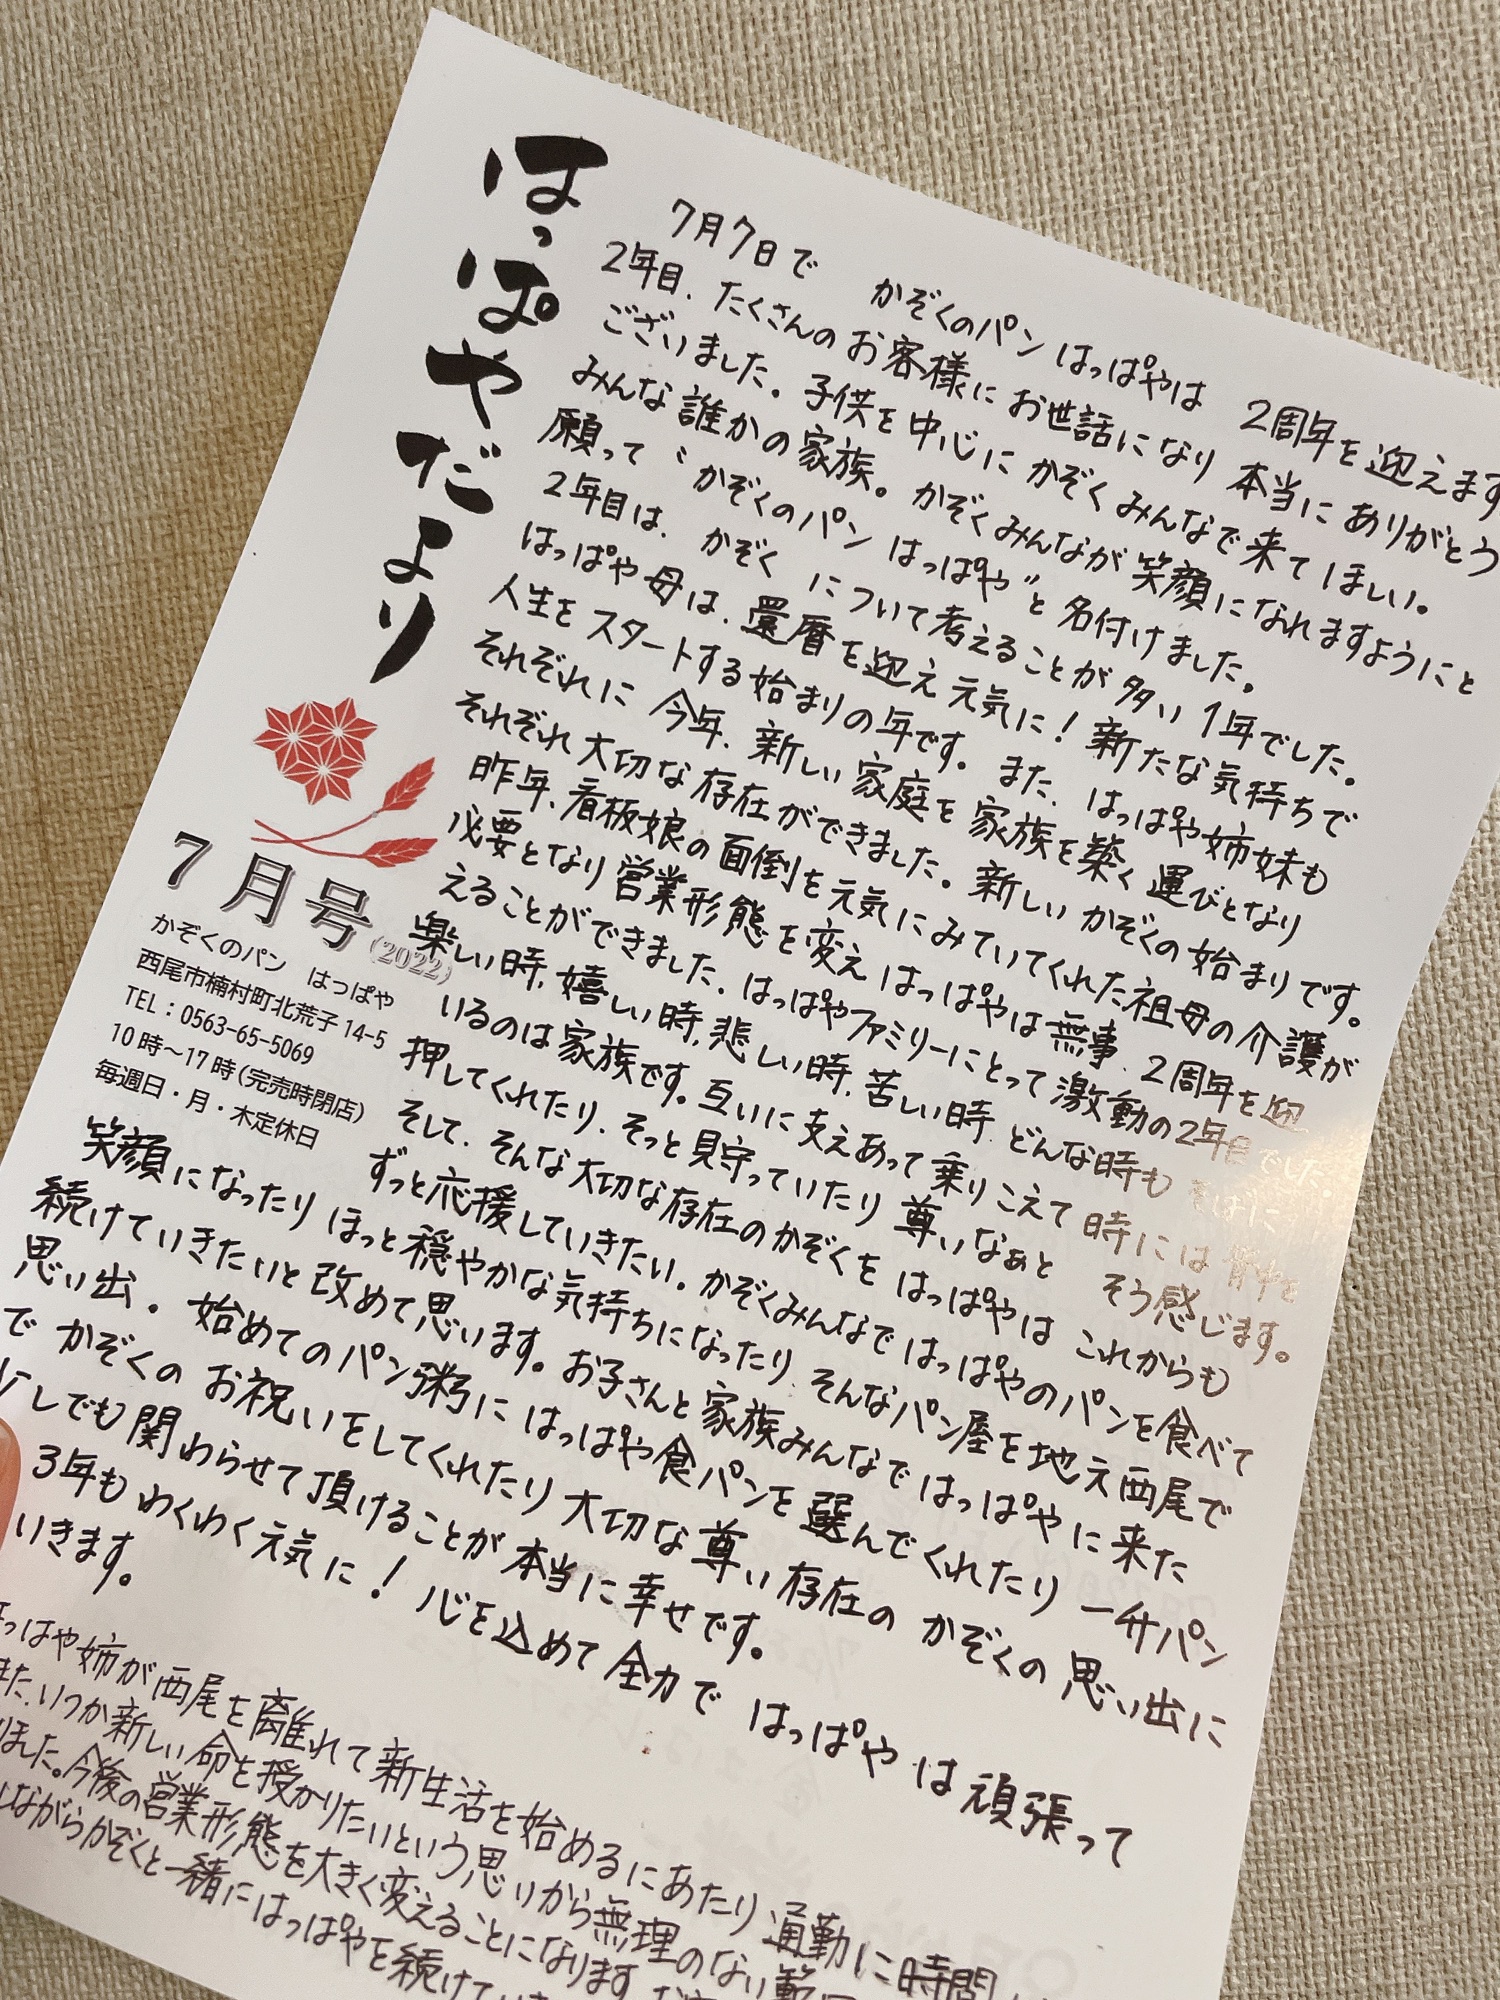 はっぱやだより
7月号
(2022)
かぞくのパン はっぱや
西尾市楠村町北荒子14-5
TEL：0563-65-5069
10時～17時(完売時閉店)
毎週日・月・木定休日
7月7日で かぞくのパン はっぱやは 2周年を迎えます
2年目、たくさんのお客様にお世話になり 本当にありがとう
ございました。子供を中心にかぞくみんなで来てほしい。
みんな誰かの家族。かぞくみんなが笑顔になれますようにと
願って〝かぞくのパン はっぱや〟と名付けました。
2年目は、かぞくについて考えることが多い1年でした。
はっぱや母は、還暦を迎え元気に！新たな気持ちで
人生をスタートする始まりの年です。また、はっぱや姉妹も
それぞれに今年、新しい家庭を家族を築く運びとなり
それぞれ大切な存在ができました。新しいかぞくの始まりです。
昨年、看板娘の面倒を元気にみていてくれた祖母の介護が
必要となり営業形態を変えはっぱやは無事、2周年を迎
えることができました。はっぱやファミリーにとって激動の2年目でした。
楽しい時、嬉しい時、悲しい時、苦しい時、どんな時もそばに
いるのは家族です。互いに支えあって乗りこえて時には背中を
押してくれたり、そっと見守っていたり尊いなぁと そう感じます。
そして、そんな大切な存在のかぞくをはっぱやはこれからも
ずっと応援していきたい。かぞくみんなではっぱやのパンを食べて
笑顔になったりほっと穏やかな気持ちになったり、そんなパン屋を地元西尾で
続けていきたいと改めて思います。お子さんと家族みんなではっぱやに来た
思い出。始めてのパン粥にはっぱや食パンを選んでくれたり一升パン
で かぞくのお祝いをしてくれたり大切な尊い存在のかぞくの思い出に
少しでも関わらせて頂けることが本当に幸せです。
3年もわくわく元気に！心を込めて全力ではっぱやは頑張って
いきます。
はっぱや姉が西尾を離れて新生活を始めるにあたり通勤に時間
また、いつか新しい命を授かりたいという思いから無理のない範
りました。今後の営業形態を大きく変えることになります
しながらかぞくと一緒にはっぱやを続けてい